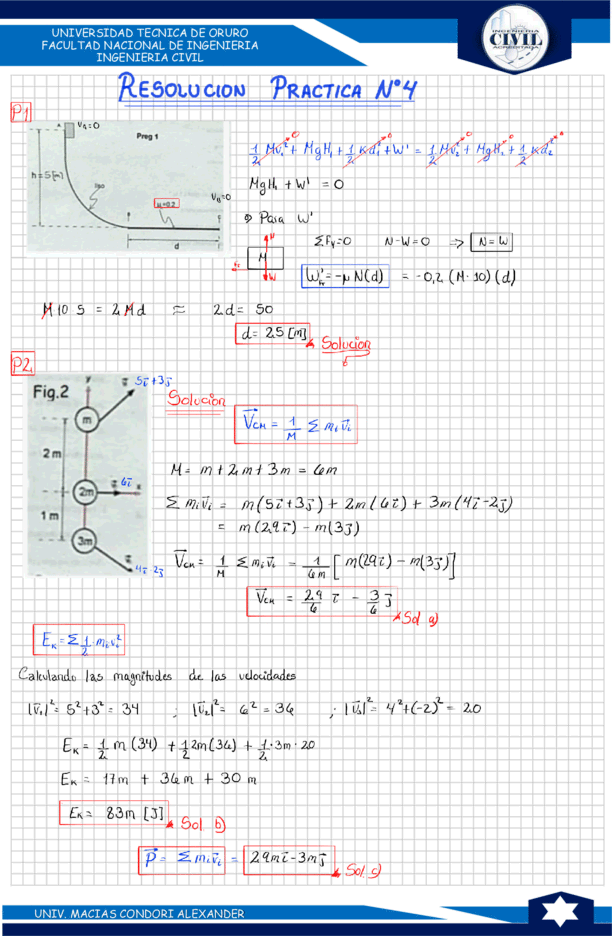 UNIVERSIDAD TECNICA DE ORURO
FACULTAD NACIONAL DE INGENIERIA
INGENIERIA CIVIL
INGENIERIA
CIVIL
ACREDITADA
RESOLUCION PRACTICA N°4
P1
A V_A=0
Preg 1
h=5[m]
liso
μ=0.2
V_B=0
d
1/2 MV₁² + MgH₁ + 1/2 Kd₁² + W' = 1/2 MV₂² + MgH₂ + 1/2 Kd₂²
0 0 0 0 0
MgH₁ + W' = 0
⇒ Para W'
N
M
W
ΣF_y=0 N-W=0 → N=W
W'_fr = -μ N(d) = -0,2 (M·10)(d)
M 10 5 = 2 M d ≈ 2d = 50
d = 25 [m]
Solucion
P2
Fig.2
y
5i+3j
m
2 m
2m
6i
x
1 m
3m
4i-2j
Solucion
V_CM = 1/M Σ m_i v_i
M = m + 2m + 3m = 6m
Σ m_i v_i = m(5i+3j) + 2m(6i) + 3m(4i-2j)
= m(29i) - m(3j)
V_CM = 1/M Σ m_i v_i = 1/6m [ m(29i) - m(3j)]
V_CM = 29/6 i - 3/6 j
Sol a)
E_K = Σ 1/2 · m_i v_i²
Calculando las magnitudes de las velocidades
|v₁|² = 5²+3² = 34 ; |v₂|² = 6² = 36 ; |v₃|² = 4²+(-2)² = 20
E_K = 1/2 m (34) + 1/2 2m(36) + 1/2 · 3m · 20
E_K = 17m + 36m + 30 m
E_K = 83m [J]
Sol b)
P = Σ m_i v_i = 29mi-3mj
Sol c)
UNIV. MACIAS CONDORI ALEXANDER